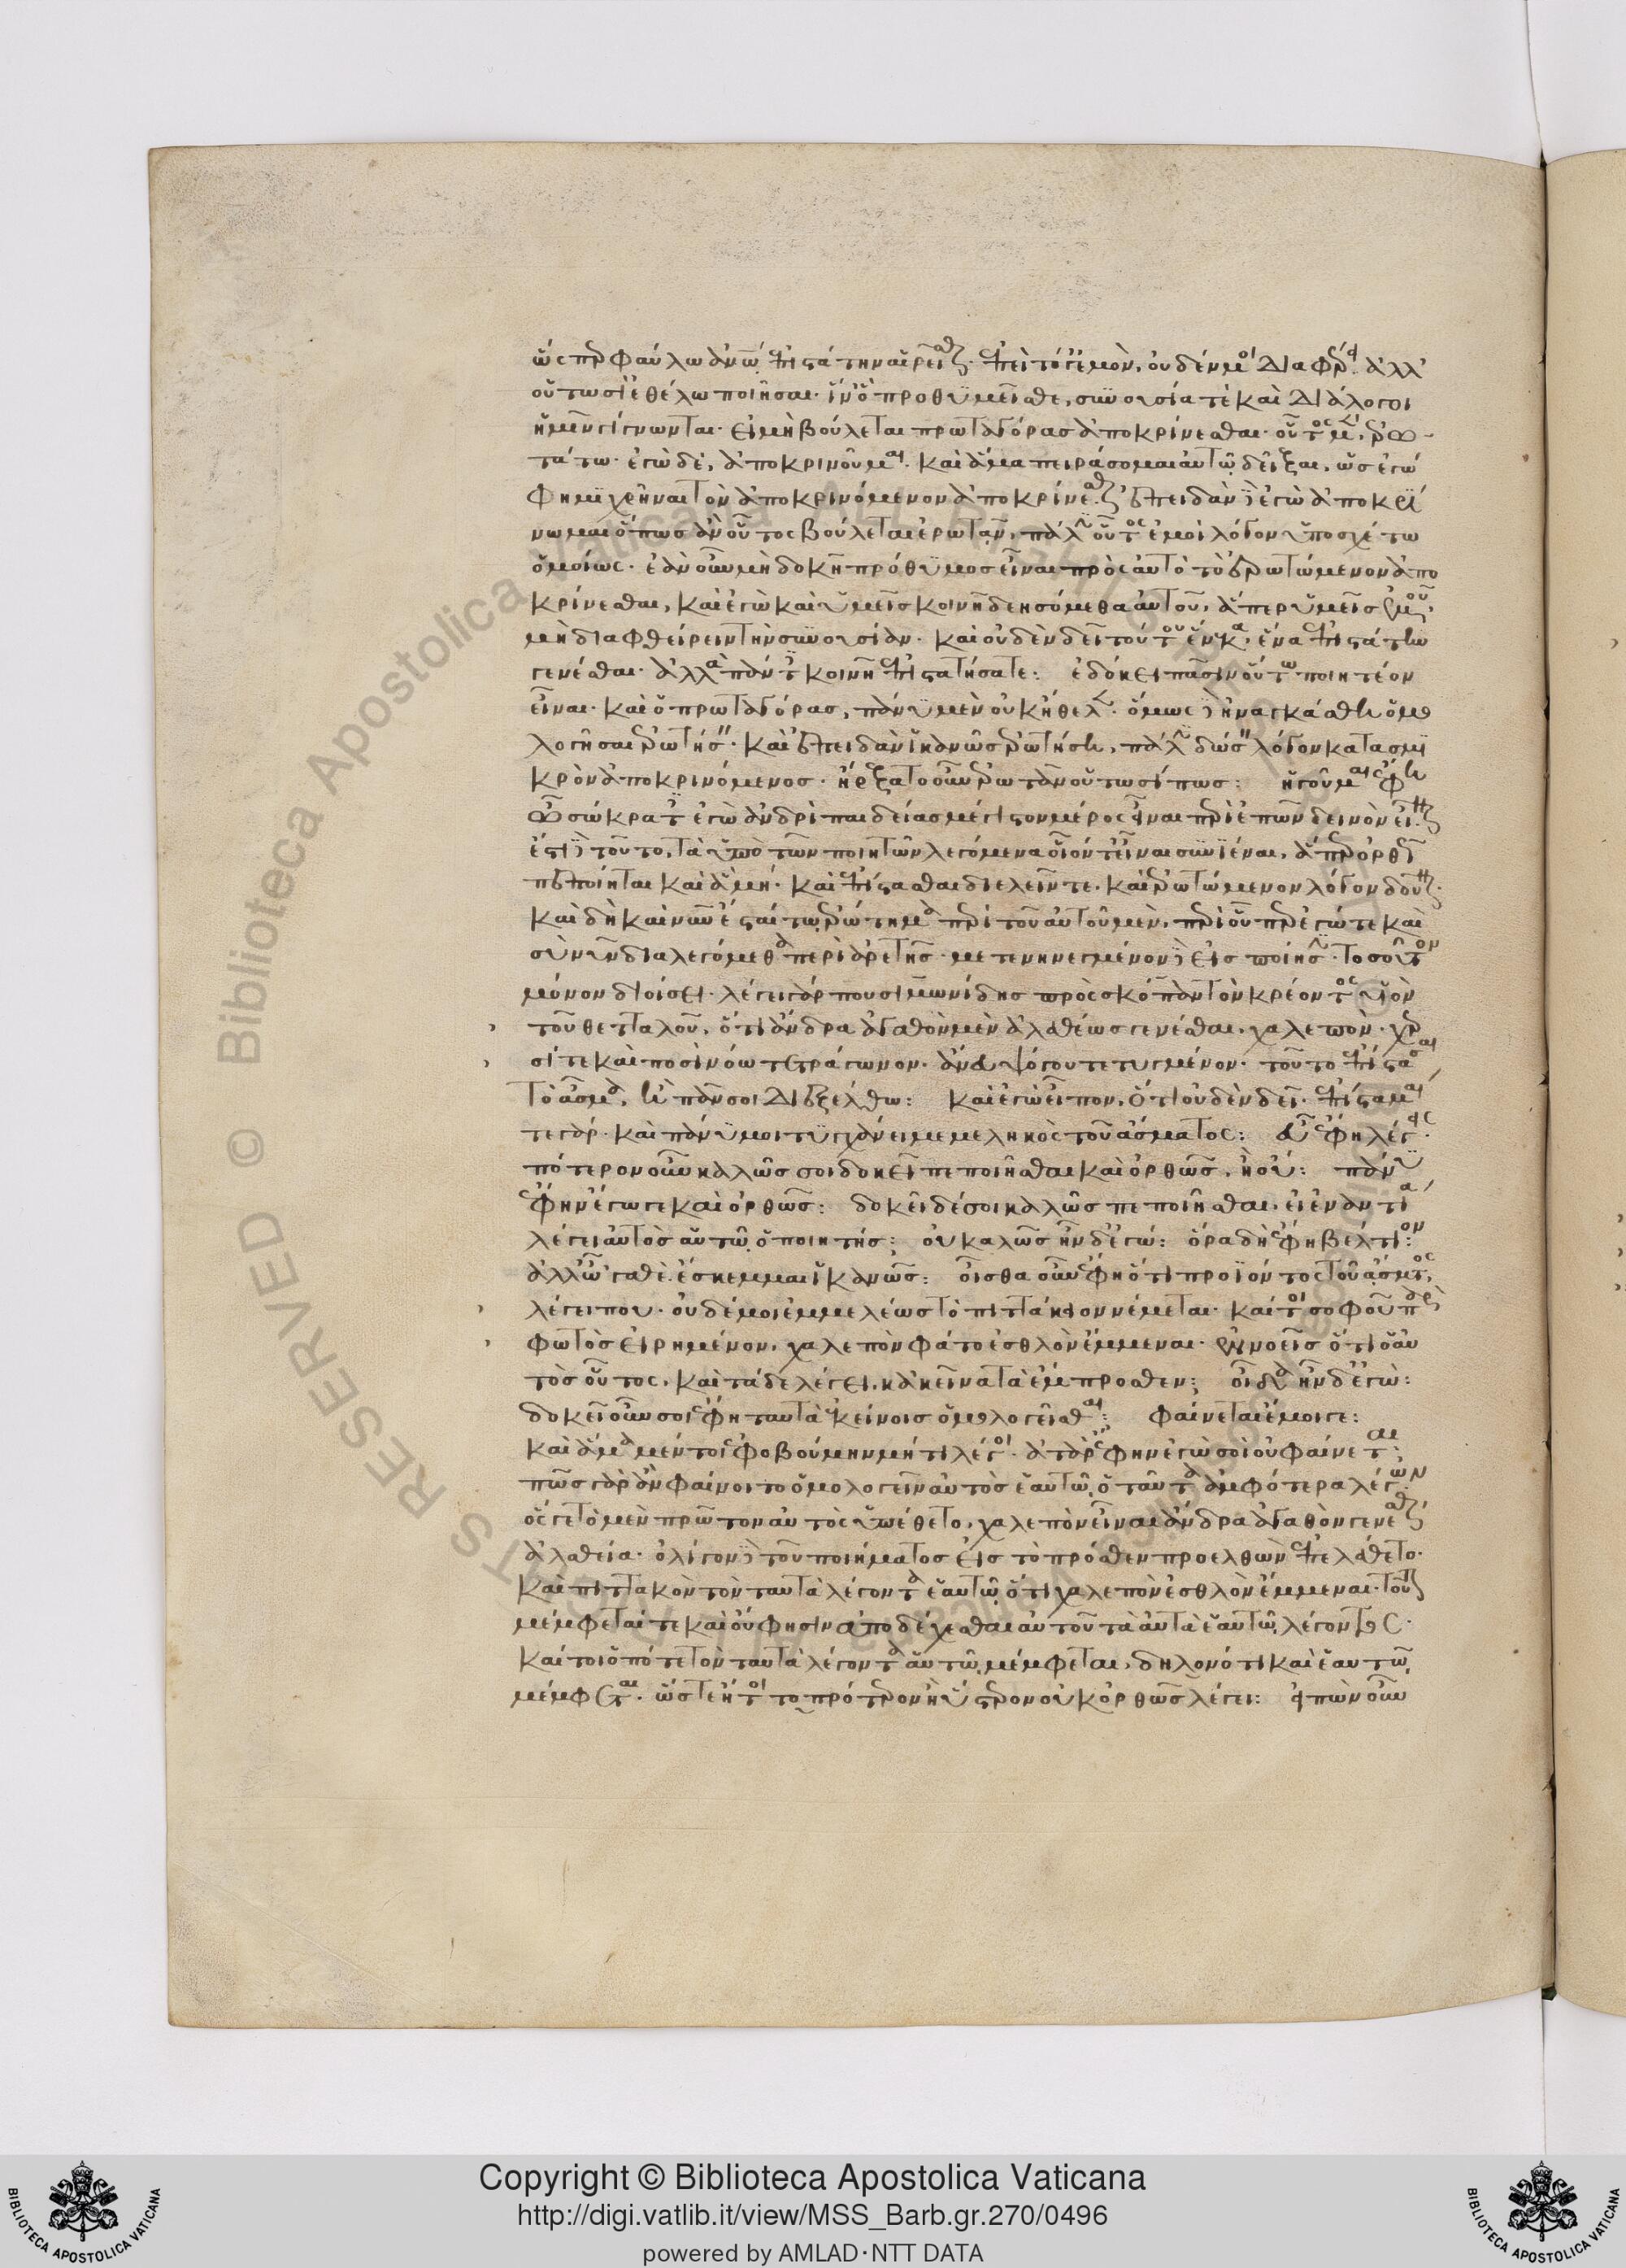 ὥσπερ φαύλω ἀνω̅ ἐπιστάτην αἱρεῖσθαι· ἐπεὶ τό γ' ἐμὸν, οὐδέν μοι διαφέρει· ἀλλ'
οὑτωσὶ ἐθέλω ποιῆσαι· ἵν' ὃ προθυμεῖσθε, συνουσία τὲ καὶ διάλογοι
ἡμῖν γίγνωνται· εἰ μὴ βούλεται πρωταγόρας ἀποκρίνεσθαι· οὗτος μὲν ἐρω
τάτω· ἐγὼ δὲ, ἀποκρινοῦμαι· καὶ ἅμα πειράσομαι αὐτῷ δεῖξαι, ὡς ἐγώ
φημι χρῆναι τὸν ἀποκρινόμενον ἀποκρίνεσθαι· ἐπειδὰν δὲ ἐγὼ ἀποκρί
νωμαι ὅπως ἂν οὗτος βούληται ἐρωτᾶν, πάλιν οὗτος ἐμοὶ λόγον ὑποσχέτω
ὁμοίως· ἐὰν οὖν μὴ δοκῆ πρόθυμος εἶναι πρὸς αὐτὸ τὸ ἐρωτώμενον ἀπο
κρίνεσθαι, καὶ ἐγὼ καὶ ὑμεῖς κοινῆ δεησόμεθα αὐτοῦ, ἅπερ ὑμεῖς ἐμοῦ,
μὴ διαφθείρειν τὴν συνουσίαν· καὶ οὐδὲν δεῖ τούτου ἕνεκα, ἕνα ἐπιστάτην
γενέσθαι· ἀλλὰ πάντες κοινῆ ἐπιστατήσατε: ἐδόκει πᾶσιν οὕτω ποιητέον
εἶναι· καὶ ὁ πρωταγόρας, πάνυ μὲν οὐκ ἤθελεν· ὅμως δὲ ἠναγκάσθη ὁμο
λογῆσαι ἐρωτήσειν· καὶ ἐπειδὰν ἱκανῶς ἐρωτήση, πάλιν δώσειν λόγον κατὰ σμι
κρὸν ἀποκρινόμενος· ἤρξατο οὖν ἐρωτᾶν οὑτωσί πως: ἡγοῦμαι ἔφη
ὦ σώκρατες ἐγὼ ἀνδρὶ παιδείας μέγιστον μέρος εἶναι περὶ ἐπῶν δεινὸν εἶναι·
ἔστι δὲ τοῦτο, τὰ ὑπὸ τῶν ποιητῶν λεγόμενα οἷόν τ' εἶναι συνιέναι, ἅ περ ὀρθῶς
πεποίηται καὶ ἃ μή· καὶ ἐπίστασθαι διελεῖν τε· καὶ ἐρωτώμενον λόγον δοῦναι·
καὶ δὴ καὶ νῦν ἔσται τὼ ἐρώτημα περὶ τοῦ αὐτοῦ μὲν, περὶ οὗπερ ἐγώ τε καὶ
σὺ νῦν διαλεγόμεθα περὶ ἀρετῆς· μετενηνεγμένον δὲ εἰς ποίησιν· τοσοῦτον
μόνον διοίσει· λέγει γάρ που σιμωνίδης πρὸς σκόπαν τὸν κρέοντος υἱὸν
τοῦ θετταλοῦ, ὅτι ἄνδρα ἀγαθὸν μὲν ἀλαθέως γενέσθαι, χαλεπὸν· χερ
σί τε καὶ ποσὶ νόω τετράγωνον· ἄνευ ψόγου τετυγμένον· τοῦτο ἐπίστασαι
τὸ ἆσμα, ἢ πᾶν σοι διεξέλθω: καὶ ἐγὼ εἶπον, ὅτι οὐδὲν δεῖ· ἐπίσταμαί
τε γάρ· καὶ πάνυ μοι τυγχάνει μεμεληκὸς τοῦ ἄσματος: εὖ ἔφη λέγεις·
πότερον οὖν καλῶς σοι δοκεῖ πεποιῆσθαι καὶ ὀρθῶς, ἢ οὔ: πάνυ
ἔφην ἐγωγε καὶ ὀρθῶς: δοκεῖ δέ σοι καλῶς πεποιῆσθαι, εἰ ἐναντία
λέγει αὐτὸς αὑτῷ ὁ ποιητής: οὐ καλῶς ἦν δ' ἐγώ: ὅρα δὴ ἔφη βέλτιον:
ἀλλ' ὦ 'γαθὲ ἔσκεμμαι ἱκανῶς: οἶσθα οὖν ἔφη ὅτι προϊόντος τοῦ ἄσματος,
λέγει που· οὐδέ μοι ἐμμελέως τὸ πιττάκιον νέμεται· καίτοι σοφοῦ παρὰ
φωτὸς εἰρημένον, χαλεπὸν φάτο ἐσθλὸν ἔμμεναι· ἐννοεῖς ὅτι ὁ αὐ
τὸς οὗτος, καὶ τάδε λέγει, κἀκεῖνα τὰ ἔμπροσθεν; οἶδα ἦν δ' ἐγὼ:
δοκεῖ οὖν σοι ἔφη ταῦτα ἐκείνοις ὁμολογεῖσθαι: φαίνεται ἔμοιγε:
καὶ ἅμα μέντοι ἐφοβούμην μή τι λέγοι· ἀτὰρ ἔφην ἐγὼ σοὶ οὐ φαίνεται:
πῶς γὰρ ἂν φαίνοιτο ὁμολογεῖν αὐτὸς ἑαυτῷ, ὁ ταῦτα ἀμφότερα λέγων
ὅς γε τὸ μὲν πρῶτον αὐτὸς ὑπέθετο, χαλεπὸν εἶναι ἄνδρα ἀγαθὸν γενέσθαι
ἀλαθεία· ὀλίγον δὲ τοῦ ποιήματος εἰς τὸ πρόσθεν προελθὼν ἐπελάθετο·
καὶ πιττακὸν τὸν ταῦτα λέγοντα ἑαυτῷ, ὅτι χαλεπὸν ἐσθλὸν ἔμμεναι· τοῦτον
μέμφεταί τε καὶ οὔ φησιν ἀποδέχεσθαι αὐτοῦ τὰ αὐτὰ ἑαυτῷ λέγοντος·
καίτοι ὁπότε τὸν ταῦτα λέγοντα αὑτῷ μέμφεται, δηλονότι καὶ ἑαυτῶ
μέμφεται· ὥστε ἤτοι τὸ πρότερον ἢ ὕστερον οὐκ ὀρθῶς λέγει: εἰπὼν οὖν
RESERVED © Biblioteca Apostolica Vaticana
Copyright © Biblioteca Apostolica Vaticana
http://digi.vatlib.it/view/MSS_Barb.gr.270/0496
powered by AMLAD·NTT DATA
BIBLIOTECA APOSTOLICA VATICANA
BIBLIOTECA APOSTOLICA VATICANA